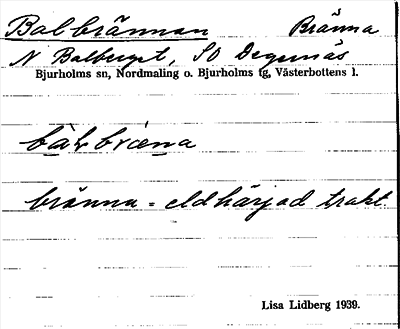 Balbrännan Bränna
N Balberget, SO Degernäs
Bjurholms sn, Nordmaling o. Bjurholms tg, Västerbottens l.
bränna = eldhärjad trakt.
Lisa Lidberg 1939.